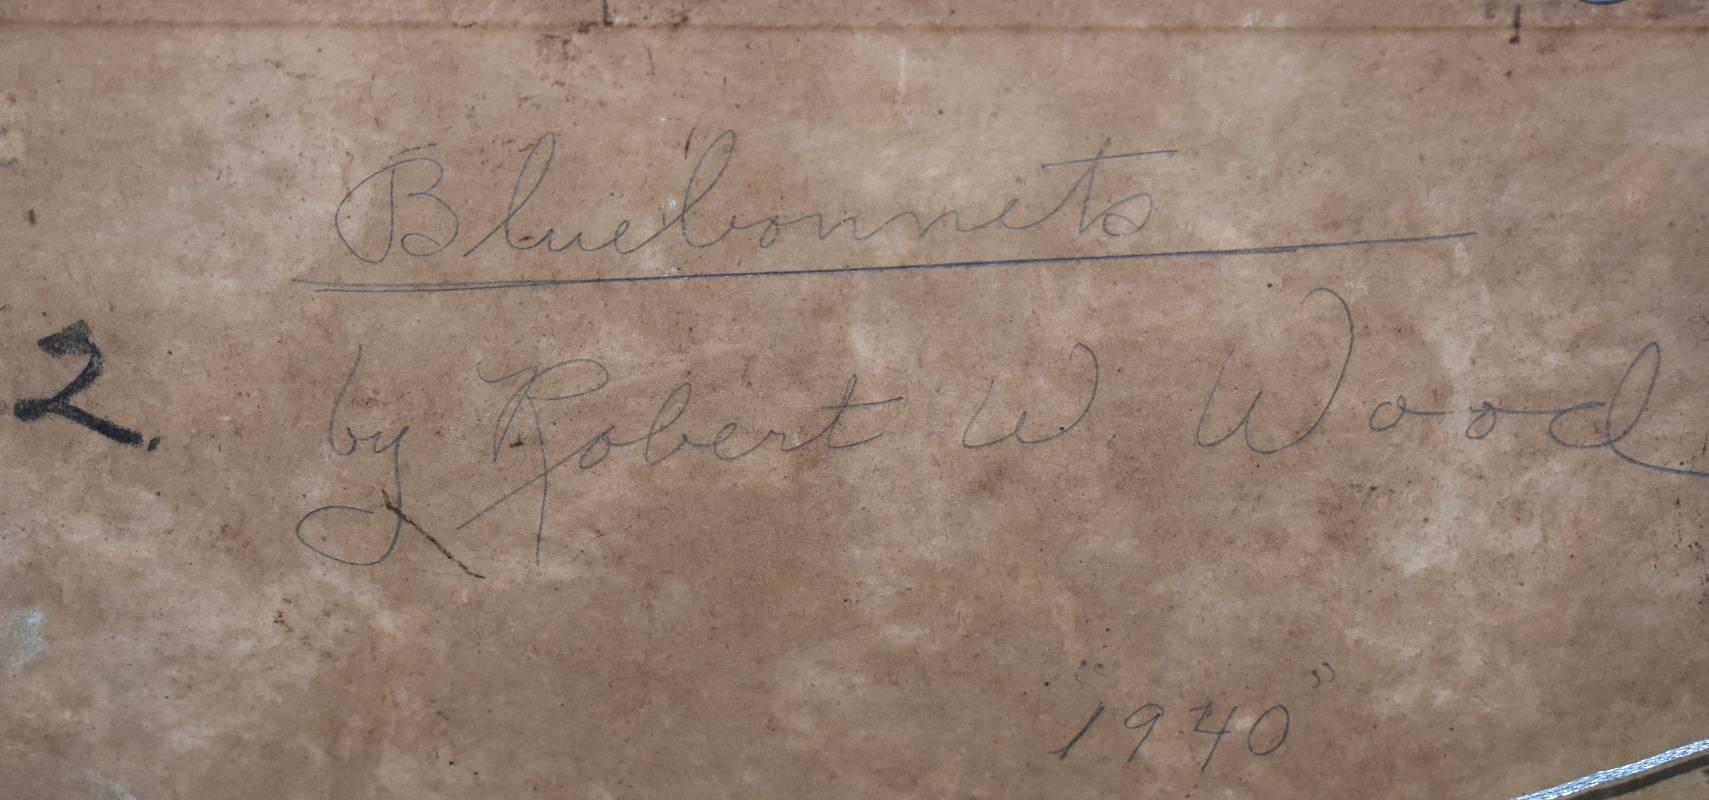 Bluebonnets
2.
by Robert W. Wood
"1940"